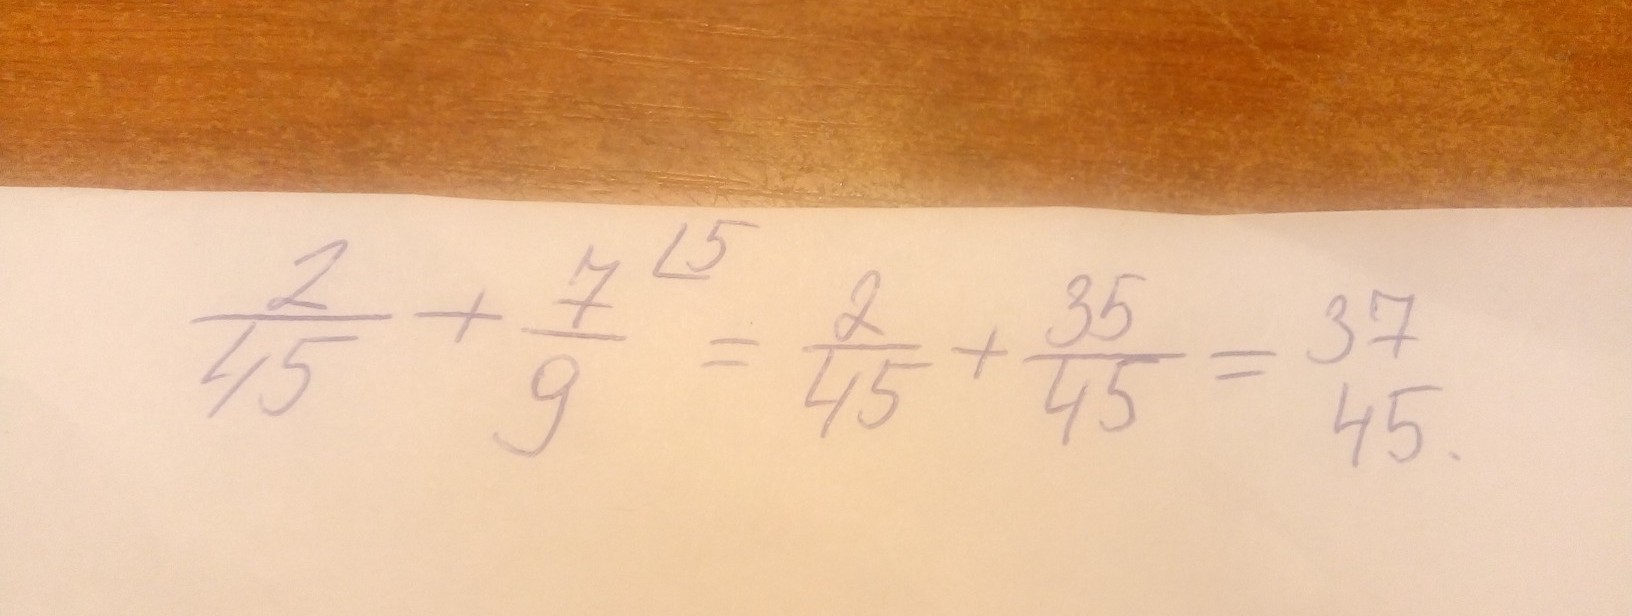 2/45 + 7/9 ⌊5 = 2/45 + 35/45 = 37 45.